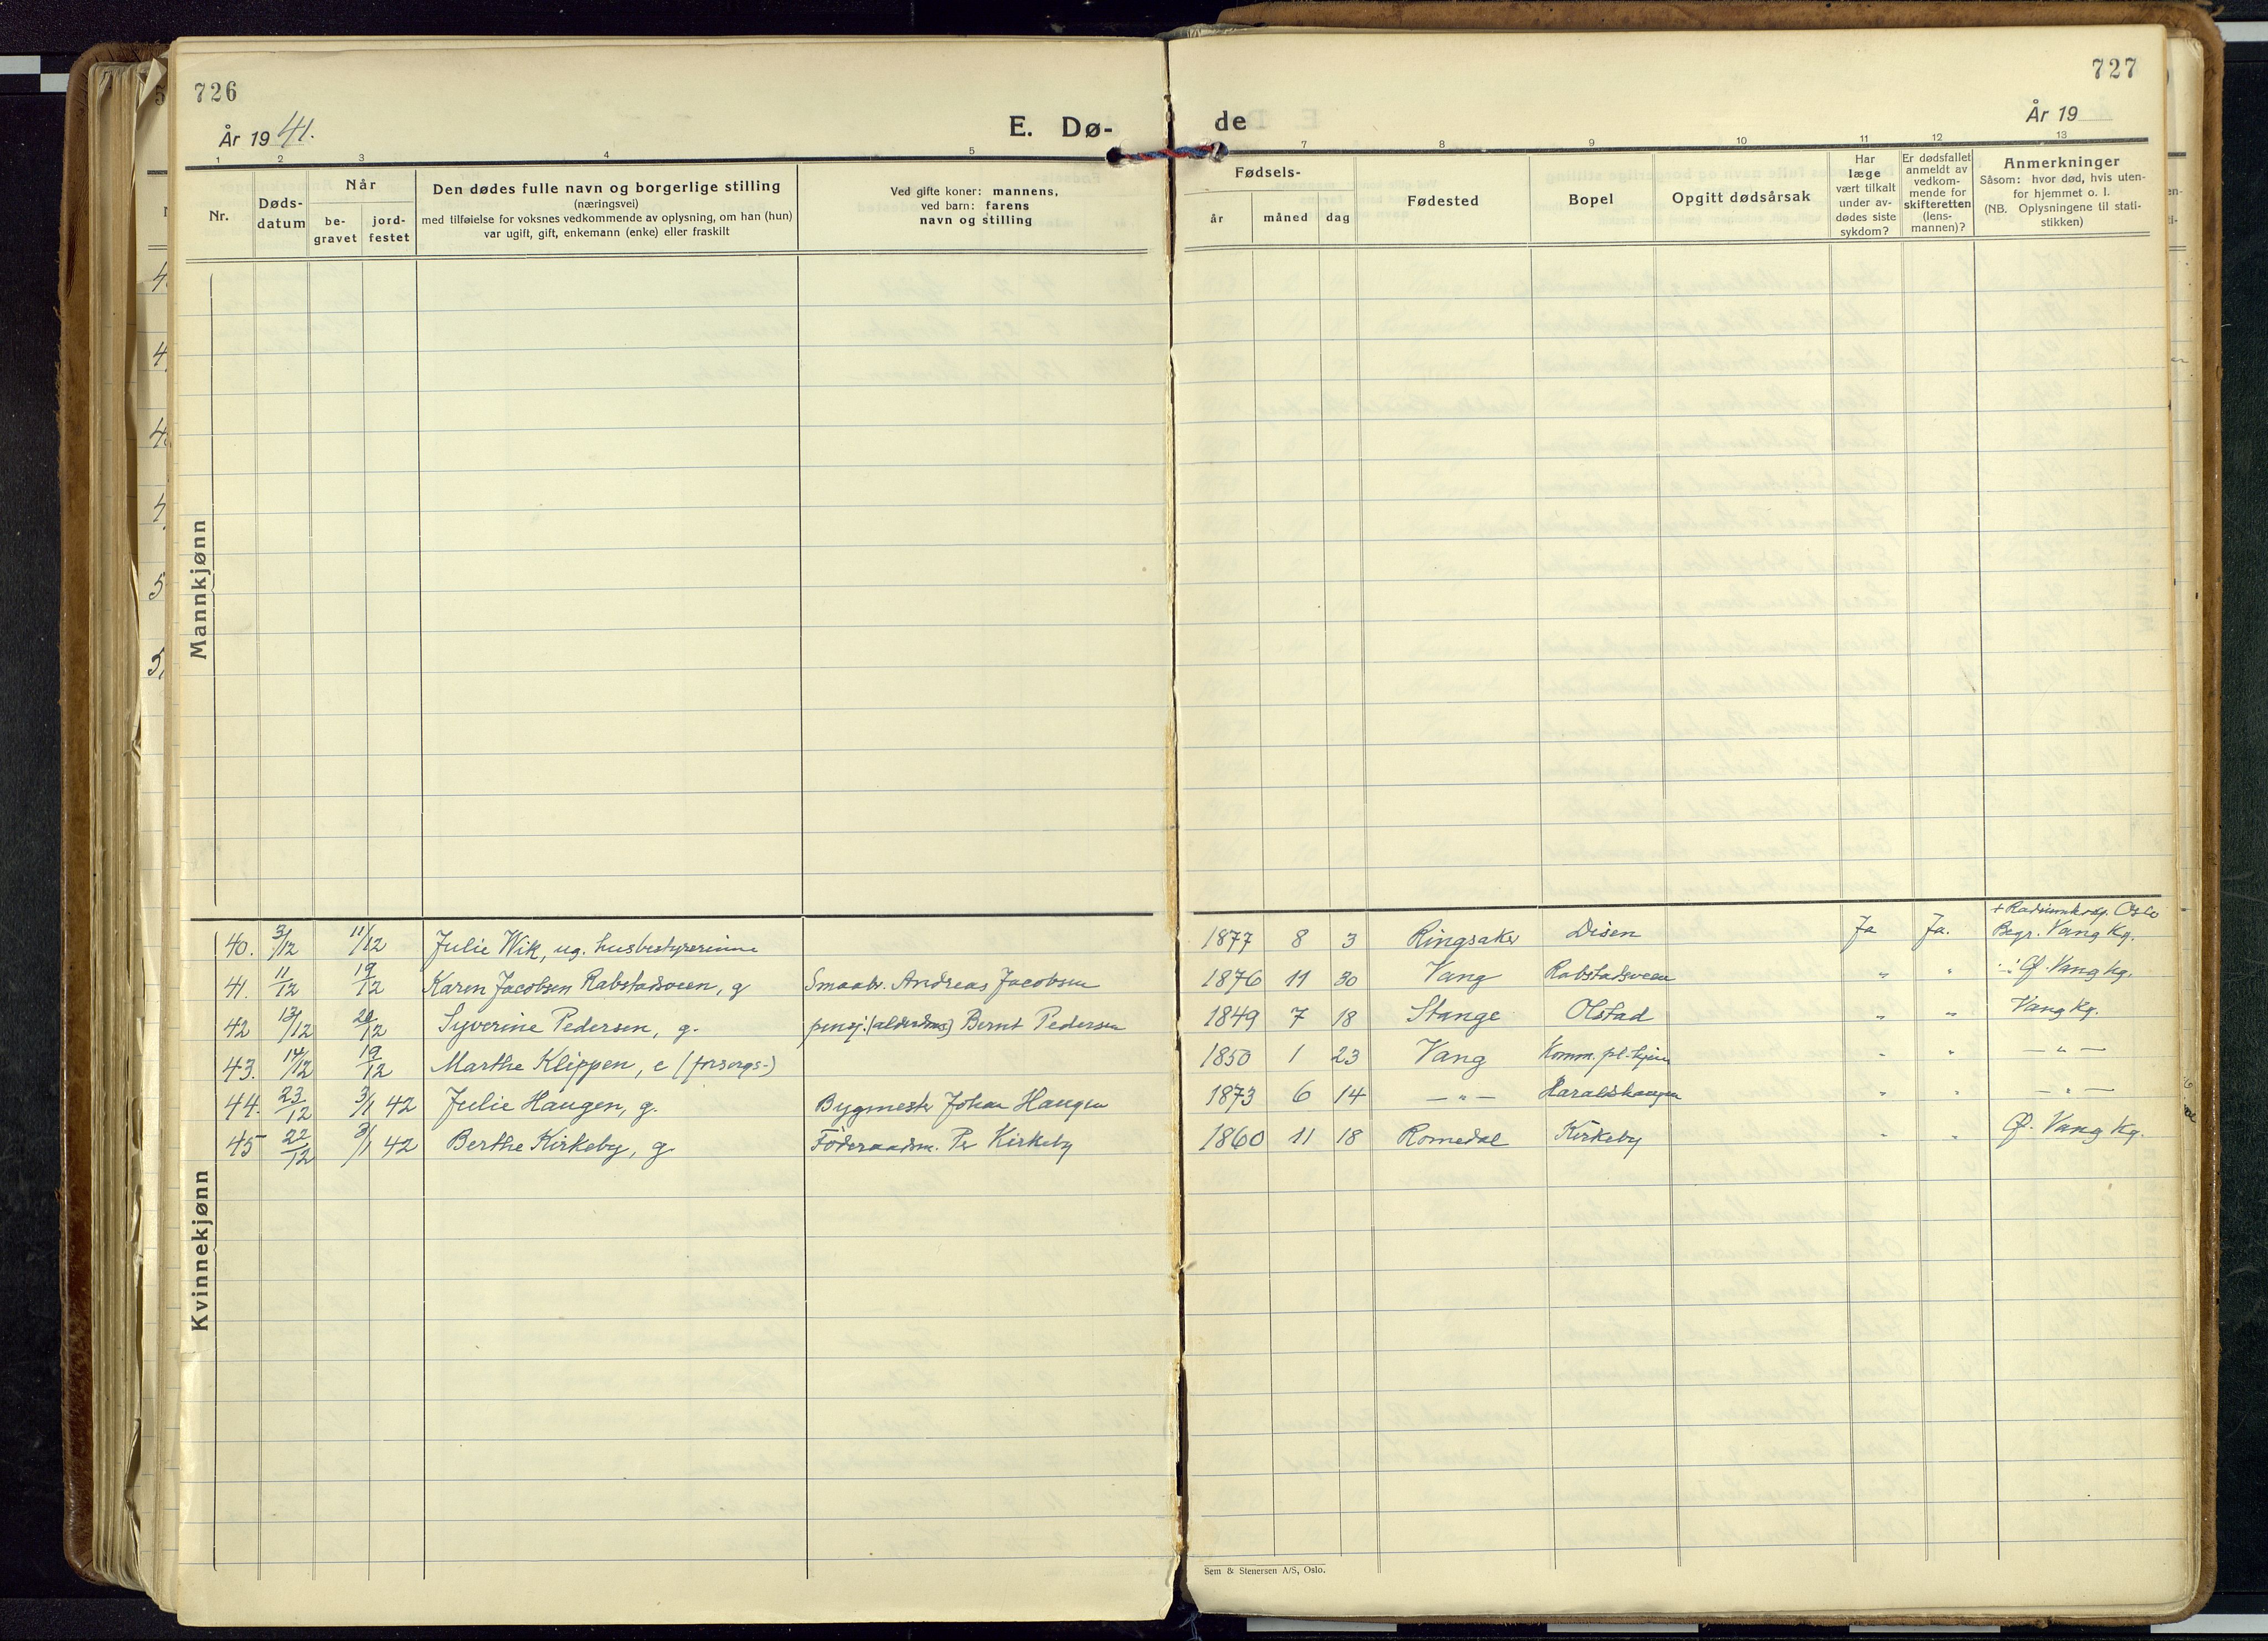 726
År 1941.
E. Dø-
1 2 3 4 5
Nr.
Døds-
datum
Når
be-
gravet
jord-
festet
Den dødes fulle navn og borgerlige stilling
(næringsvei)
med tilføielse for voksnes vedkommende av oplysning, om han (hun)
var ugift, gift, enkemann (enke) eller fraskilt
Ved gifte koner: mannens,
ved barn: farens
navn og stilling
Mannkjønn
40. 3/12 11/12 Julie Wik, ug. husbestyrerinne
41. 11/12 19/12 Karen Jacobsen Rabstadsveen, g Smaabr. Andreas Jacobsen
42 13/12 20/12 Syverine Pedersen, g. pensj. Bernt Pedersen
43. 14/12 19/12 Marthe Klippen, e (forsorgs-)
44. 23/12 3/1 42 Julie Haugen, g. Bygmester Johan Haugen
45 22/12 3/1 42 Berthe Kirkeby, g. Föderaadsm. Per Kirkeby
Kvinnekjønn
727
År 19
de
7 8 9 10 11 12 13
Fødsels-
år måned dag
Fødested
Bopel
Opgitt dødsårsak
Har
læge
vært tilkalt
under av-
dødes siste
sykdom?
Er dødsfallet
anmeldt av
vedkom-
mende for
skifteretten
(lens-
mannen)?
Anmerkninger
Såsom: hvor død, hvis uten-
for hjemmet o. l.
(NB. Oplysningene til stati-
stikken)
+ Radiumhosp. Oslo
1877 8 3 Ringsaker Disen Ja Ja. Begr. Vang kg.
1876 11 30 Vang Rabstadsveen " " Ø. Vang kg.
1849 7 18 Stange Olstad " " Vang kg.
1850 1 23 Vang Komm. pl.hjem " " — " —
1873 6 14 — " — Haraldshaugen " " — " —
1860 11 18 Romedal Kirkeby " " Ø. Vang kg.
Sem & Stenersen A/S, Oslo.